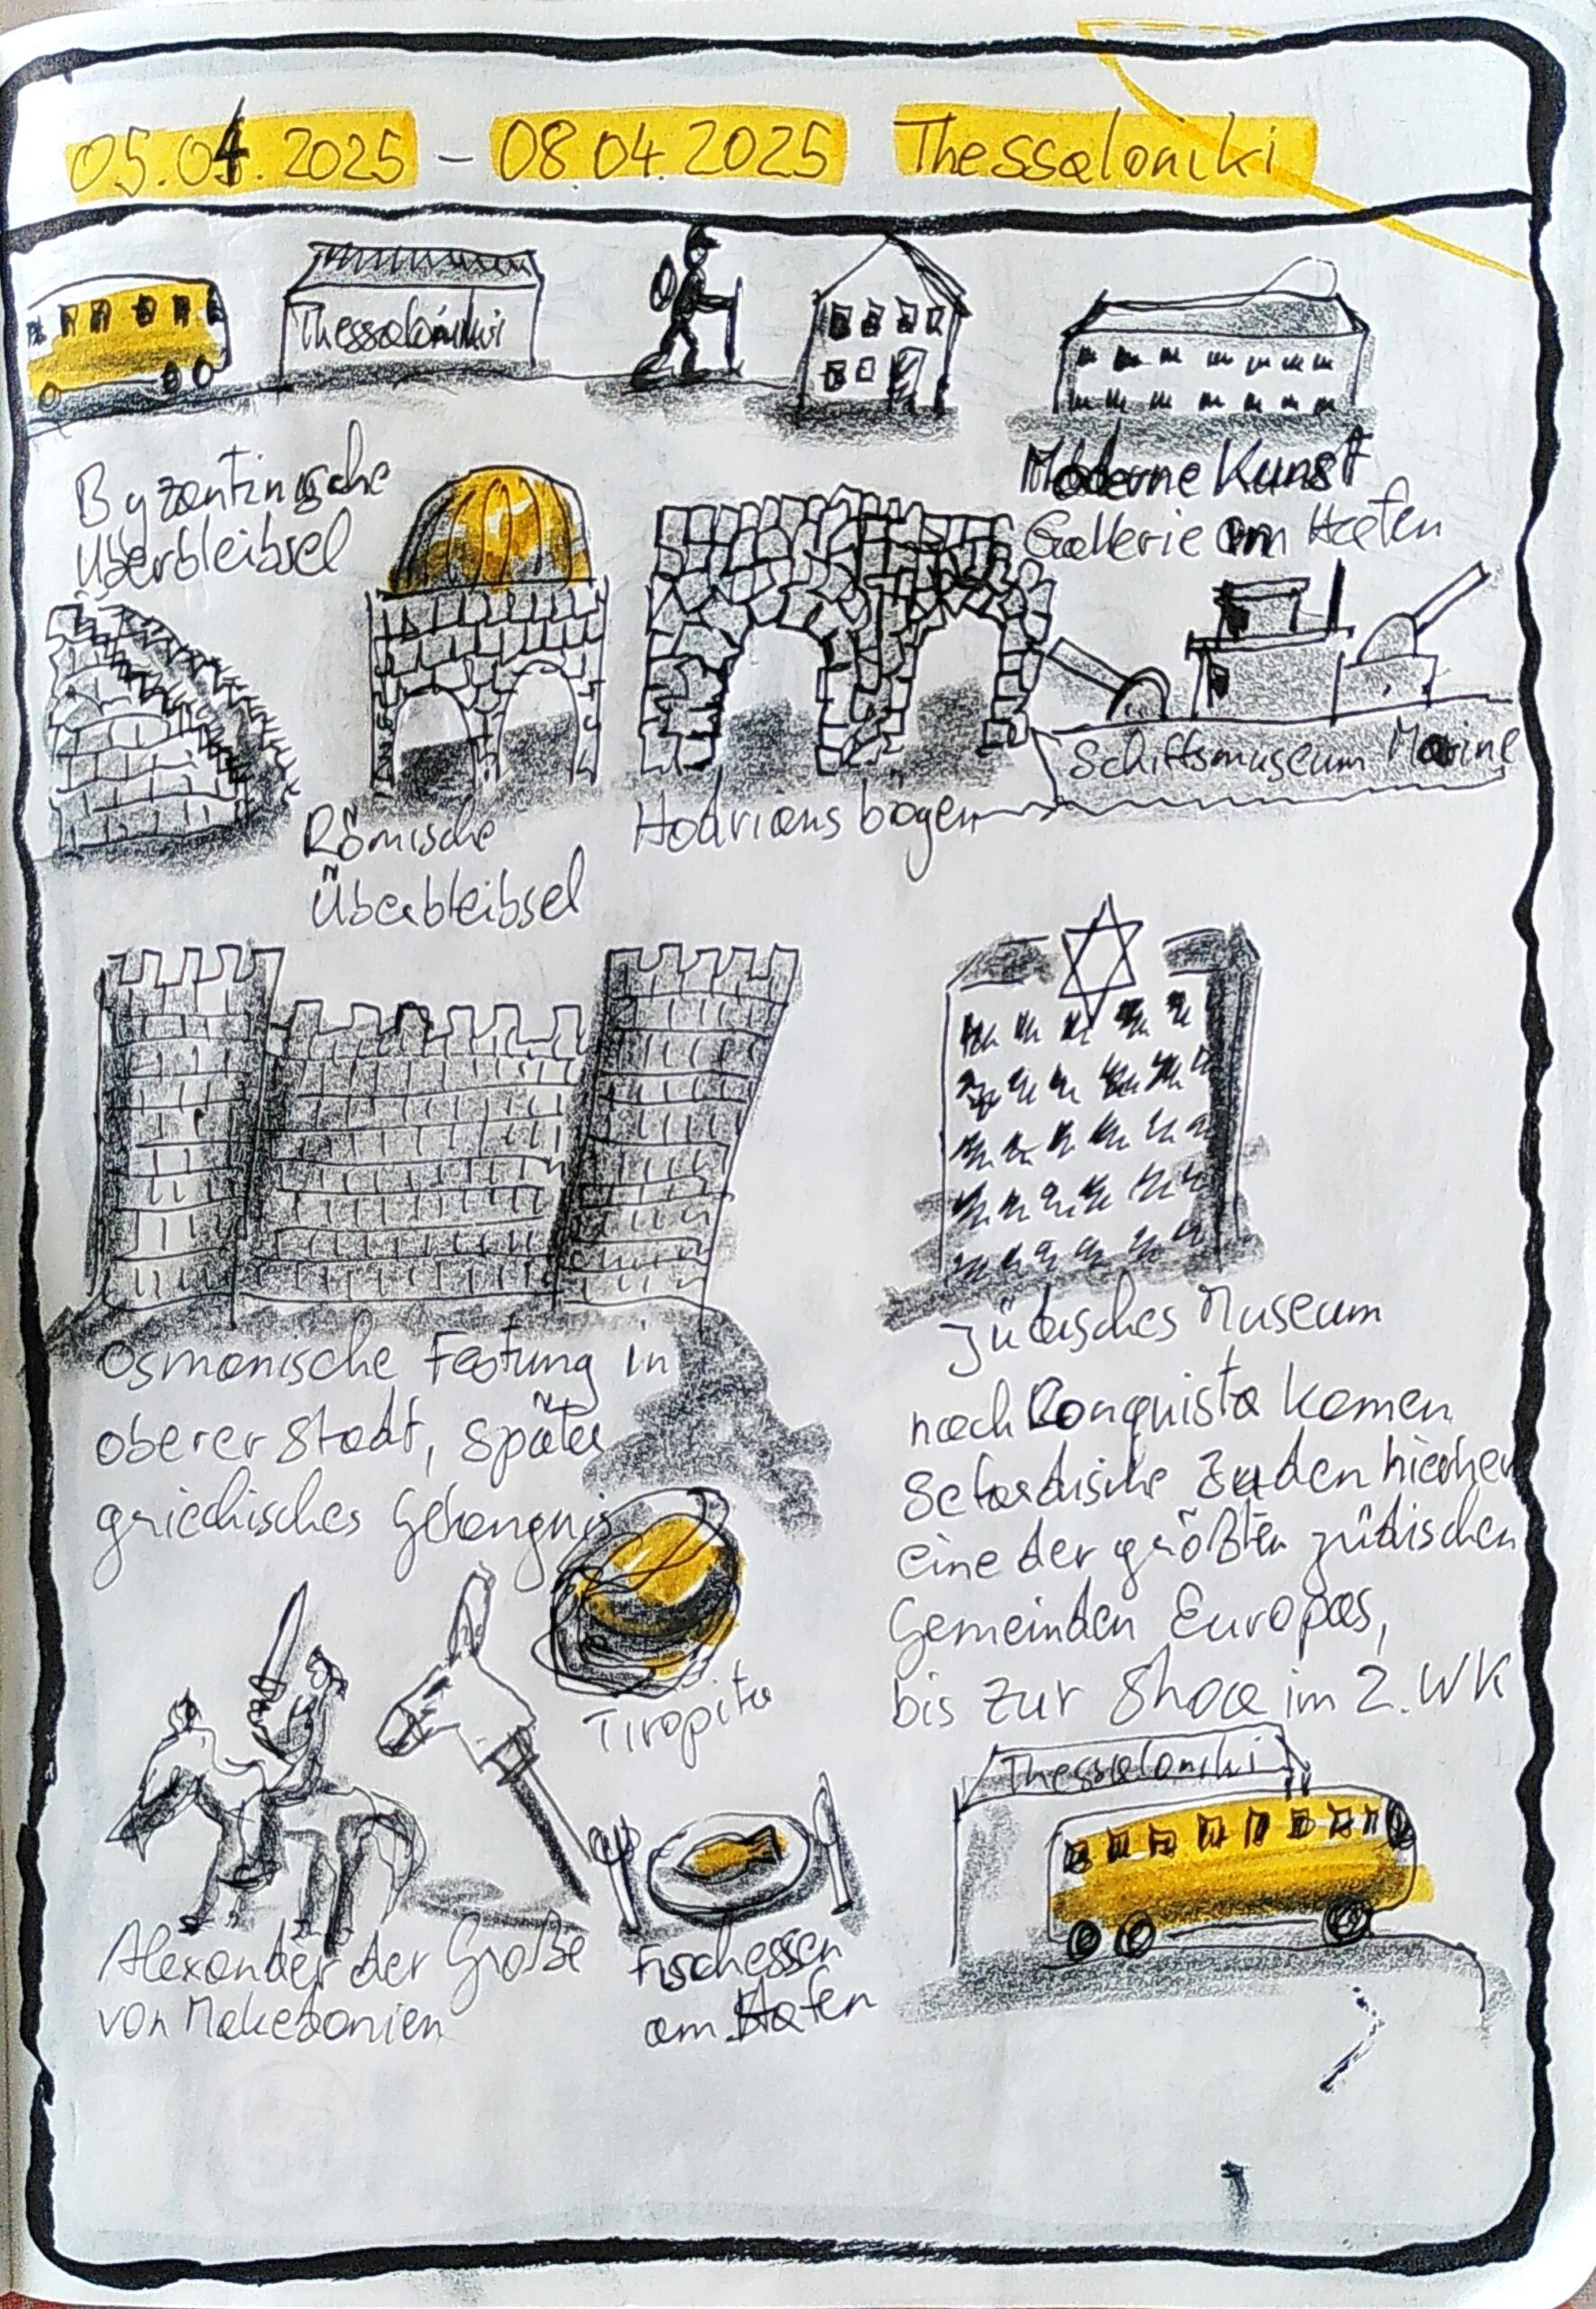 05.04.2025 – 08.04.2025 Thessaloniki
Thessaloniki
Byzantinische
Überbleibsel
Moderne Kunst
Gallerie am Hafen
Schiffsmuseum Marine
Römische
Überbleibsel
Hadriansbögen
Osmanische Festung in
oberer Stadt, später
griechisches Gefängnis
Jüdisches Museum
nach Conquista kamen
Sefardische Juden hierher
eine der größten jüdischen
Gemeinden Europas,
bis zur Shoa im 2. WK
Tiropita
Thessaloniki
Alexander der Große
von Makedonien
Fischessen
am Hafen